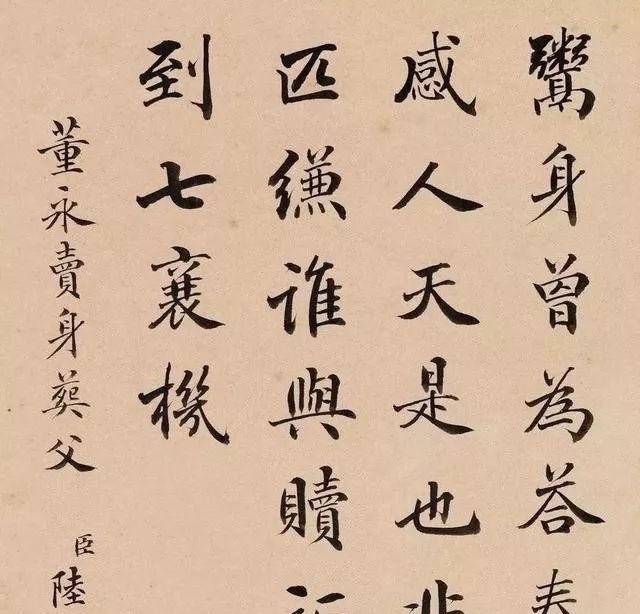 鬻身曾為答春
感人天是也非
匹縑誰與贖
到七襄機
董永賣身葬父
臣陸